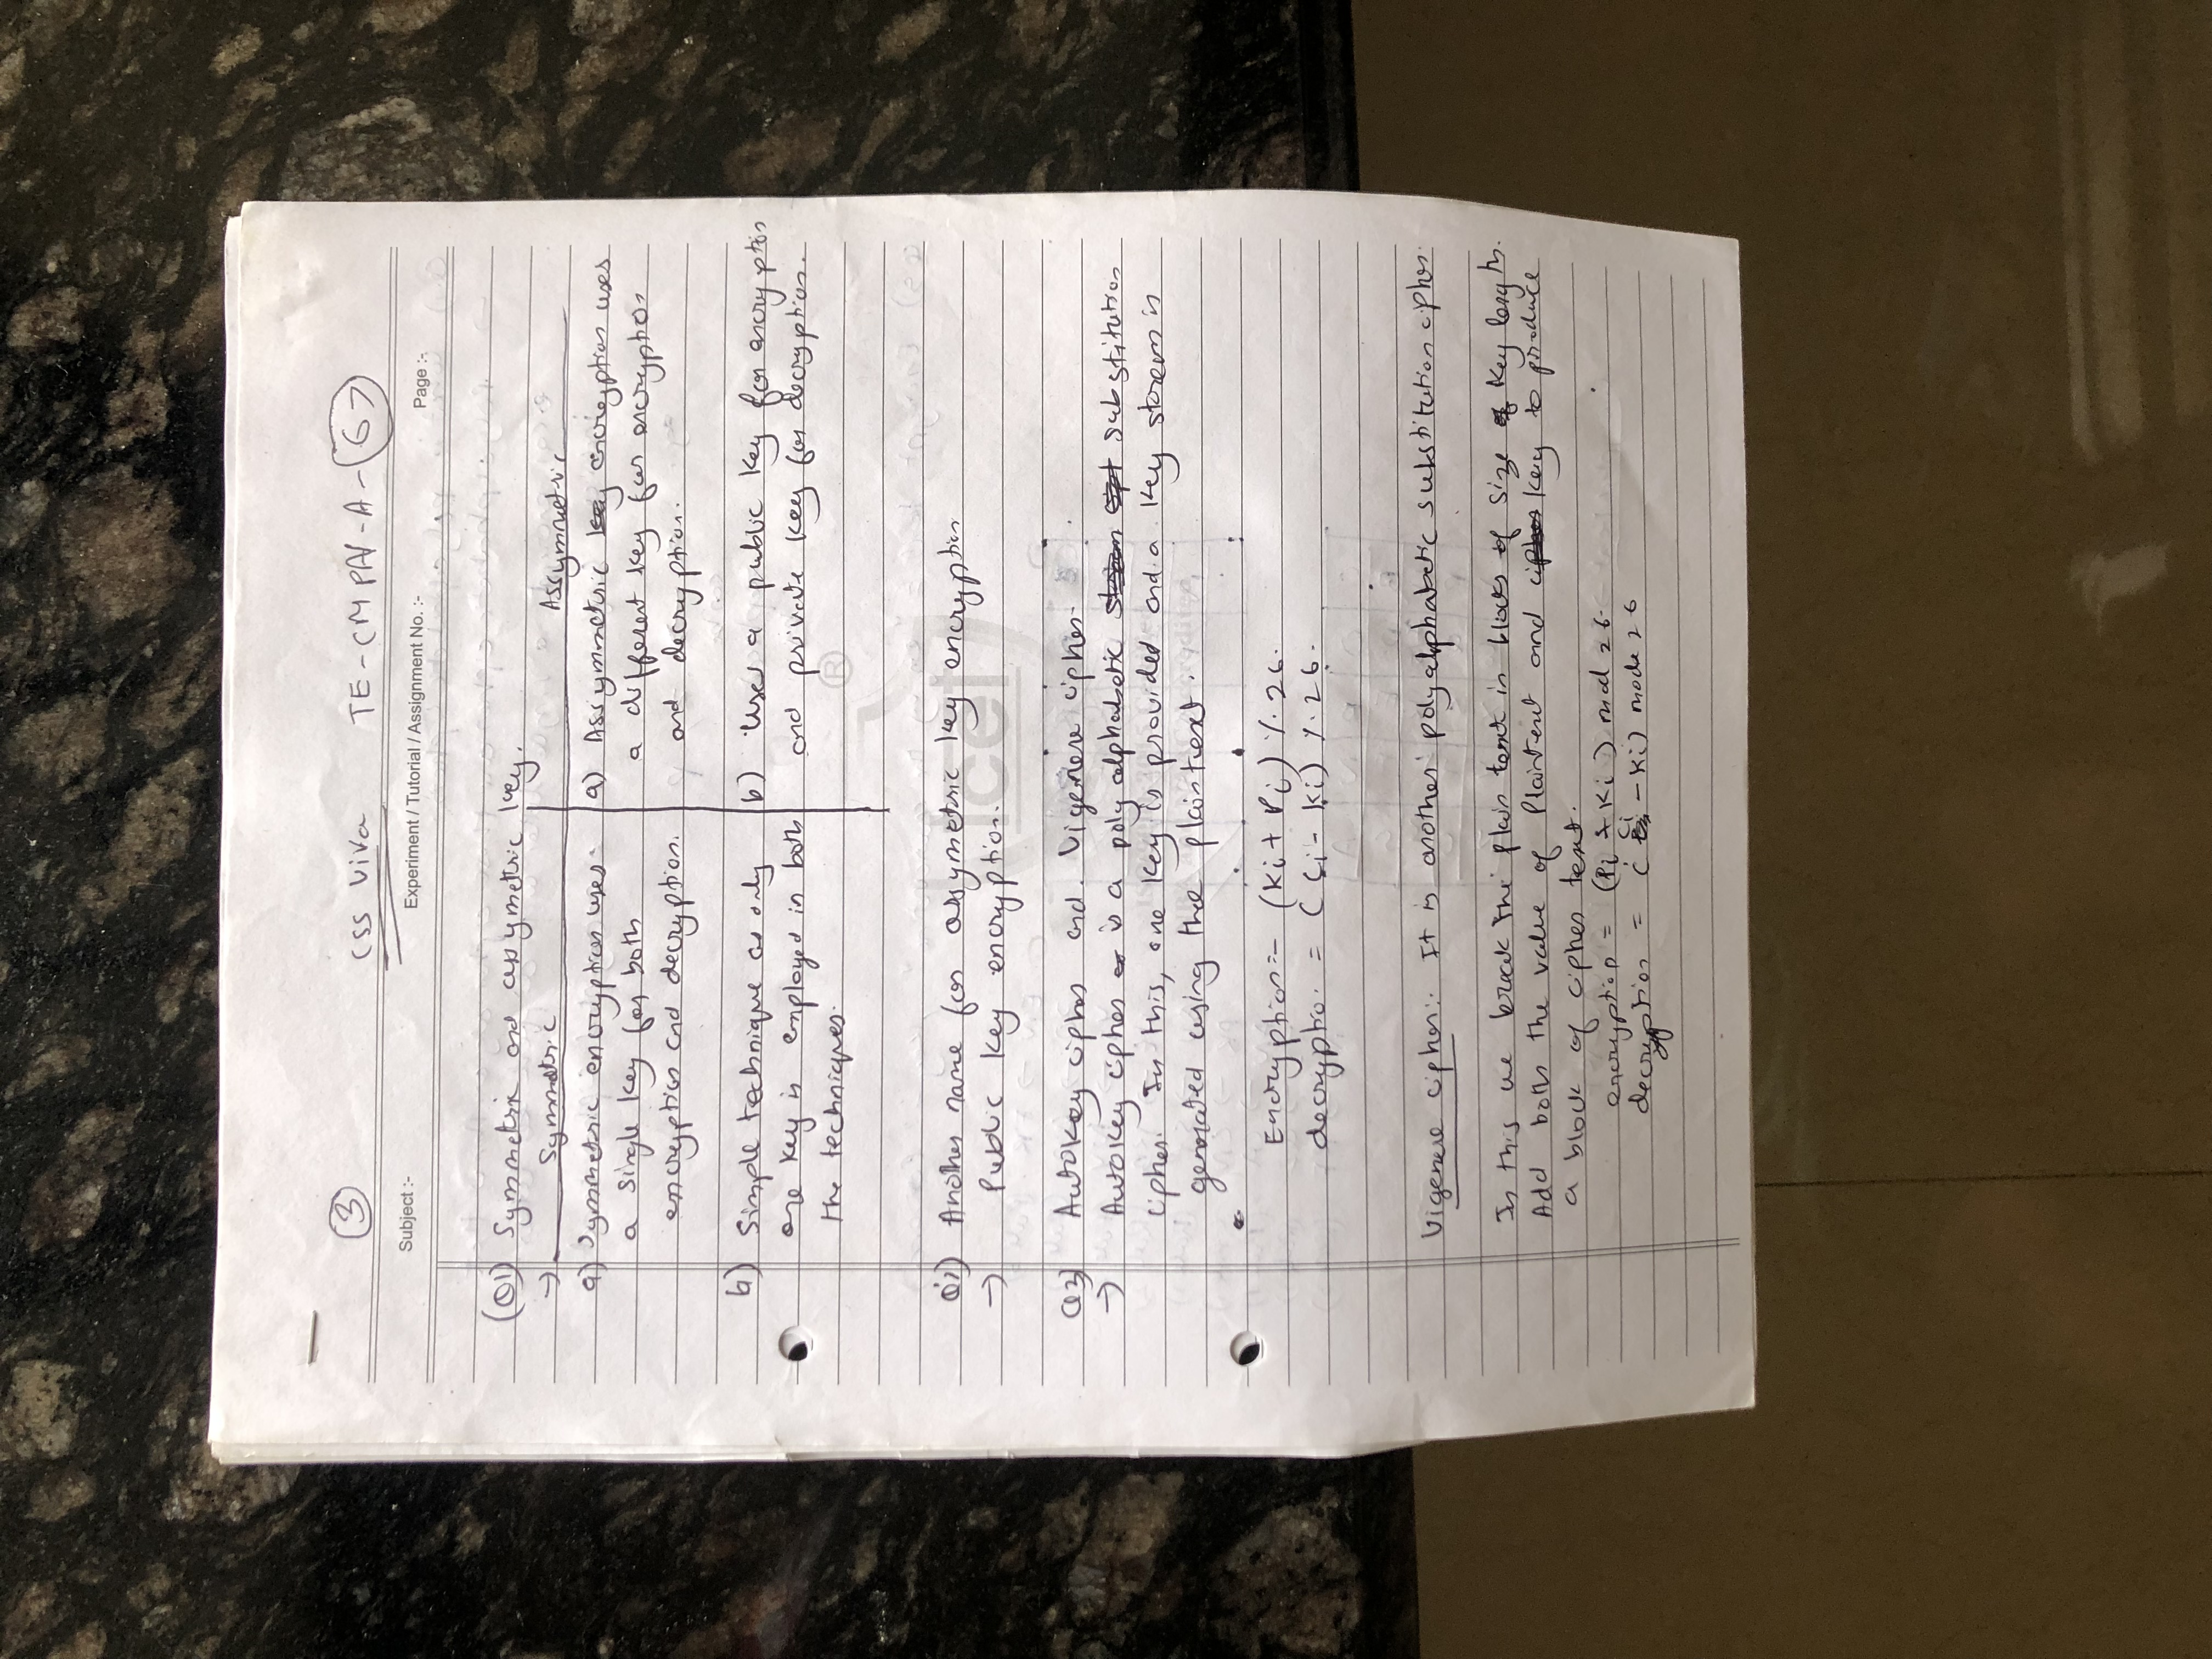 ③ CSS Viva TE-CMPN-A-67
Subject :- Experiment / Tutorial / Assignment No. :- Page :-
(Q1) Symmetric and assymetric key.
→ Symmetric Assymetric
a) Symmetric encryption uses a) Assymetric encryption uses
a single key for both a different key for encryption
encryption and decryption. and decryption.
b) Simple technique as only b) Uses a public key for encryption
one key is employed in both and private key for decryption.
the techniques.
Another name for assymetric key encryption
→ Public key encryption.
Autokey cipher and Vigenere cipher.
→ Autokey cipher is a polyalphabetic substitution
cipher. In this, one key is provided and a key stream is
generated using the plaintext.
Encryption = (Ki + Pi) % 26.
decryption = (Ci - Ki) % 26.
Vigenere cipher: It is another polyalphabetic substitution cipher.
In this we break the plain text in blocks of size key length.
Add both the value of Plaintext and key to produce
a block of cipher text.
encryption = (Pi + Ki) mod 26.
decryption = (Ci - Ki) mode 26